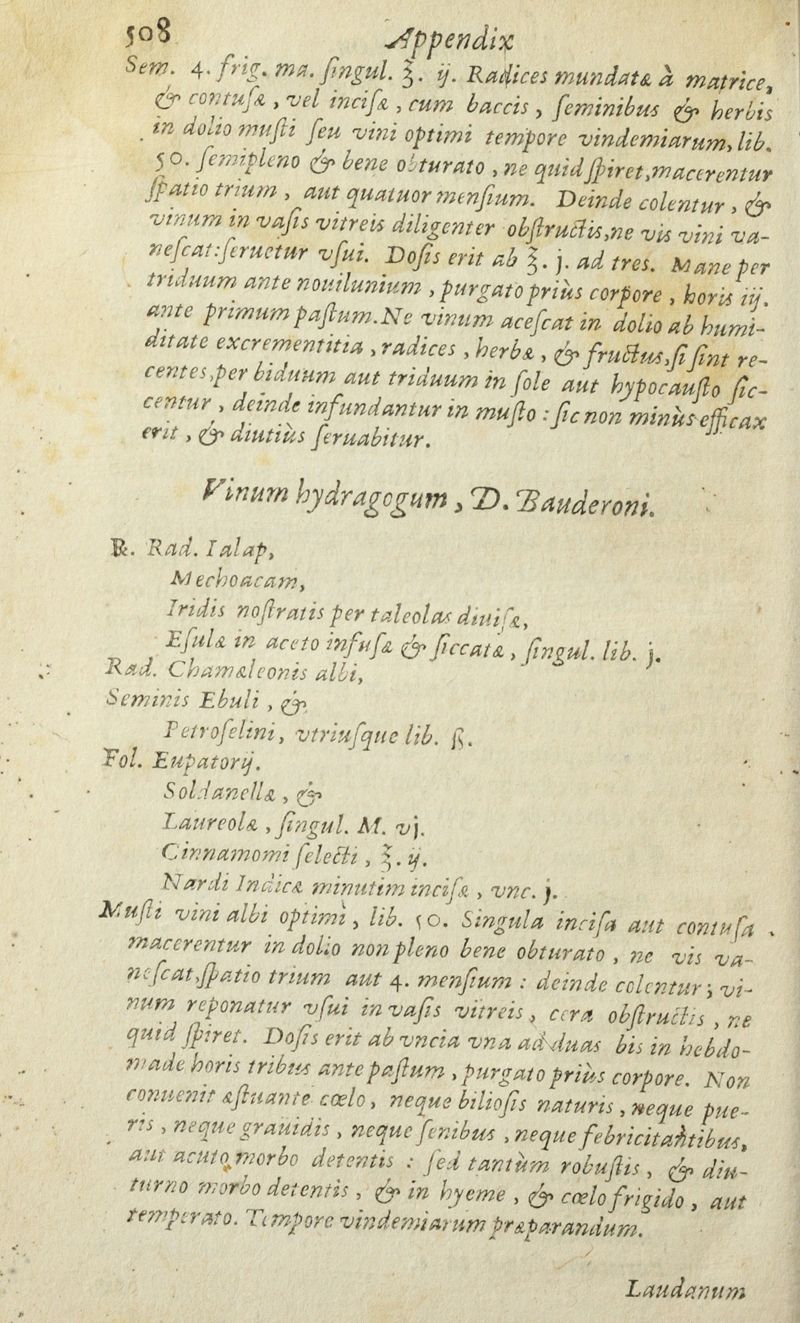 508 Appendix
Sem. 4. frig. ma. ſingul. ℥. ij. Radices mundatæ à matrice,
& contuſæ, vel inciſæ, cum baccis, ſeminibus & herbis
in dolio muſti ſeu vini optimi tempore vindemiarum, lib.
50. ſemipleno & bene obturato, ne quid ſpiret, macerentur
ſpatio trium, aut quatuor menſium. Deinde colentur, &
vinum in vaſis vitreis diligenter obſtructis, ne vis vini va-
neſcat: ſeruetur vſui. Doſis erit ab ℥. j. ad tres. Mane per
triduum ante nouilunium, purgato priùs corpore, horis iij.
ante primum paſtum. Ne vinum aceſcat in dolio ab humi-
ditate excrementitia, radices, herbæ, & fructus, ſi ſint re-
centes, per biduum aut triduum in ſole aut hypocauſto ſic-
centur, deinde infundantur in muſto: ſic non minùs efficax
erit, & diutiùs ſeruabitur.
Vinum hydragogum, D. Bauderoni.
℞. Rad. Ialap,
Mechoacam,
Iridis noſtratis per taleolas diuiſæ,
Eſulæ in aceto infuſæ & ſiccatæ, ſingul. lib. j.
Rad. Chamæleonis albi,
Seminis Ebuli, &
Petroſelini, vtriuſque lib. ß.
Fol. Eupatorij.
Soldanellæ, &
Laureolæ, ſingul. M. vj.
Cinnamomi ſelecti, ℥. ij.
Nardi Indicæ minutim inciſæ, vnc. j.
Muſti vini albi optimi, lib. 50. Singula inciſa aut contuſa
macerentur in dolio non pleno bene obturato, ne vis va-
neſcat, ſpatio trium aut 4. menſium: deinde colentur; vi-
num reponatur vſui in vaſis vitreis, cera obſtructis, ne
quid ſpiret. Doſis erit ab vncia vna ad duas bis in hebdo-
made horis tribus ante paſtum, purgato priùs corpore. Non
conuenit æſtuante cœlo, neque bilioſis naturis, neque pue-
ris, neque grauidis, neque ſenibus, neque febricitantibus,
aut acuto morbo detentis: ſed tantùm robuſtis, & diu-
turno morbo detentis, & in hyeme, & cœlo frigido, aut
temperato. Tempore vindemiarum præparandum.
Laudanum